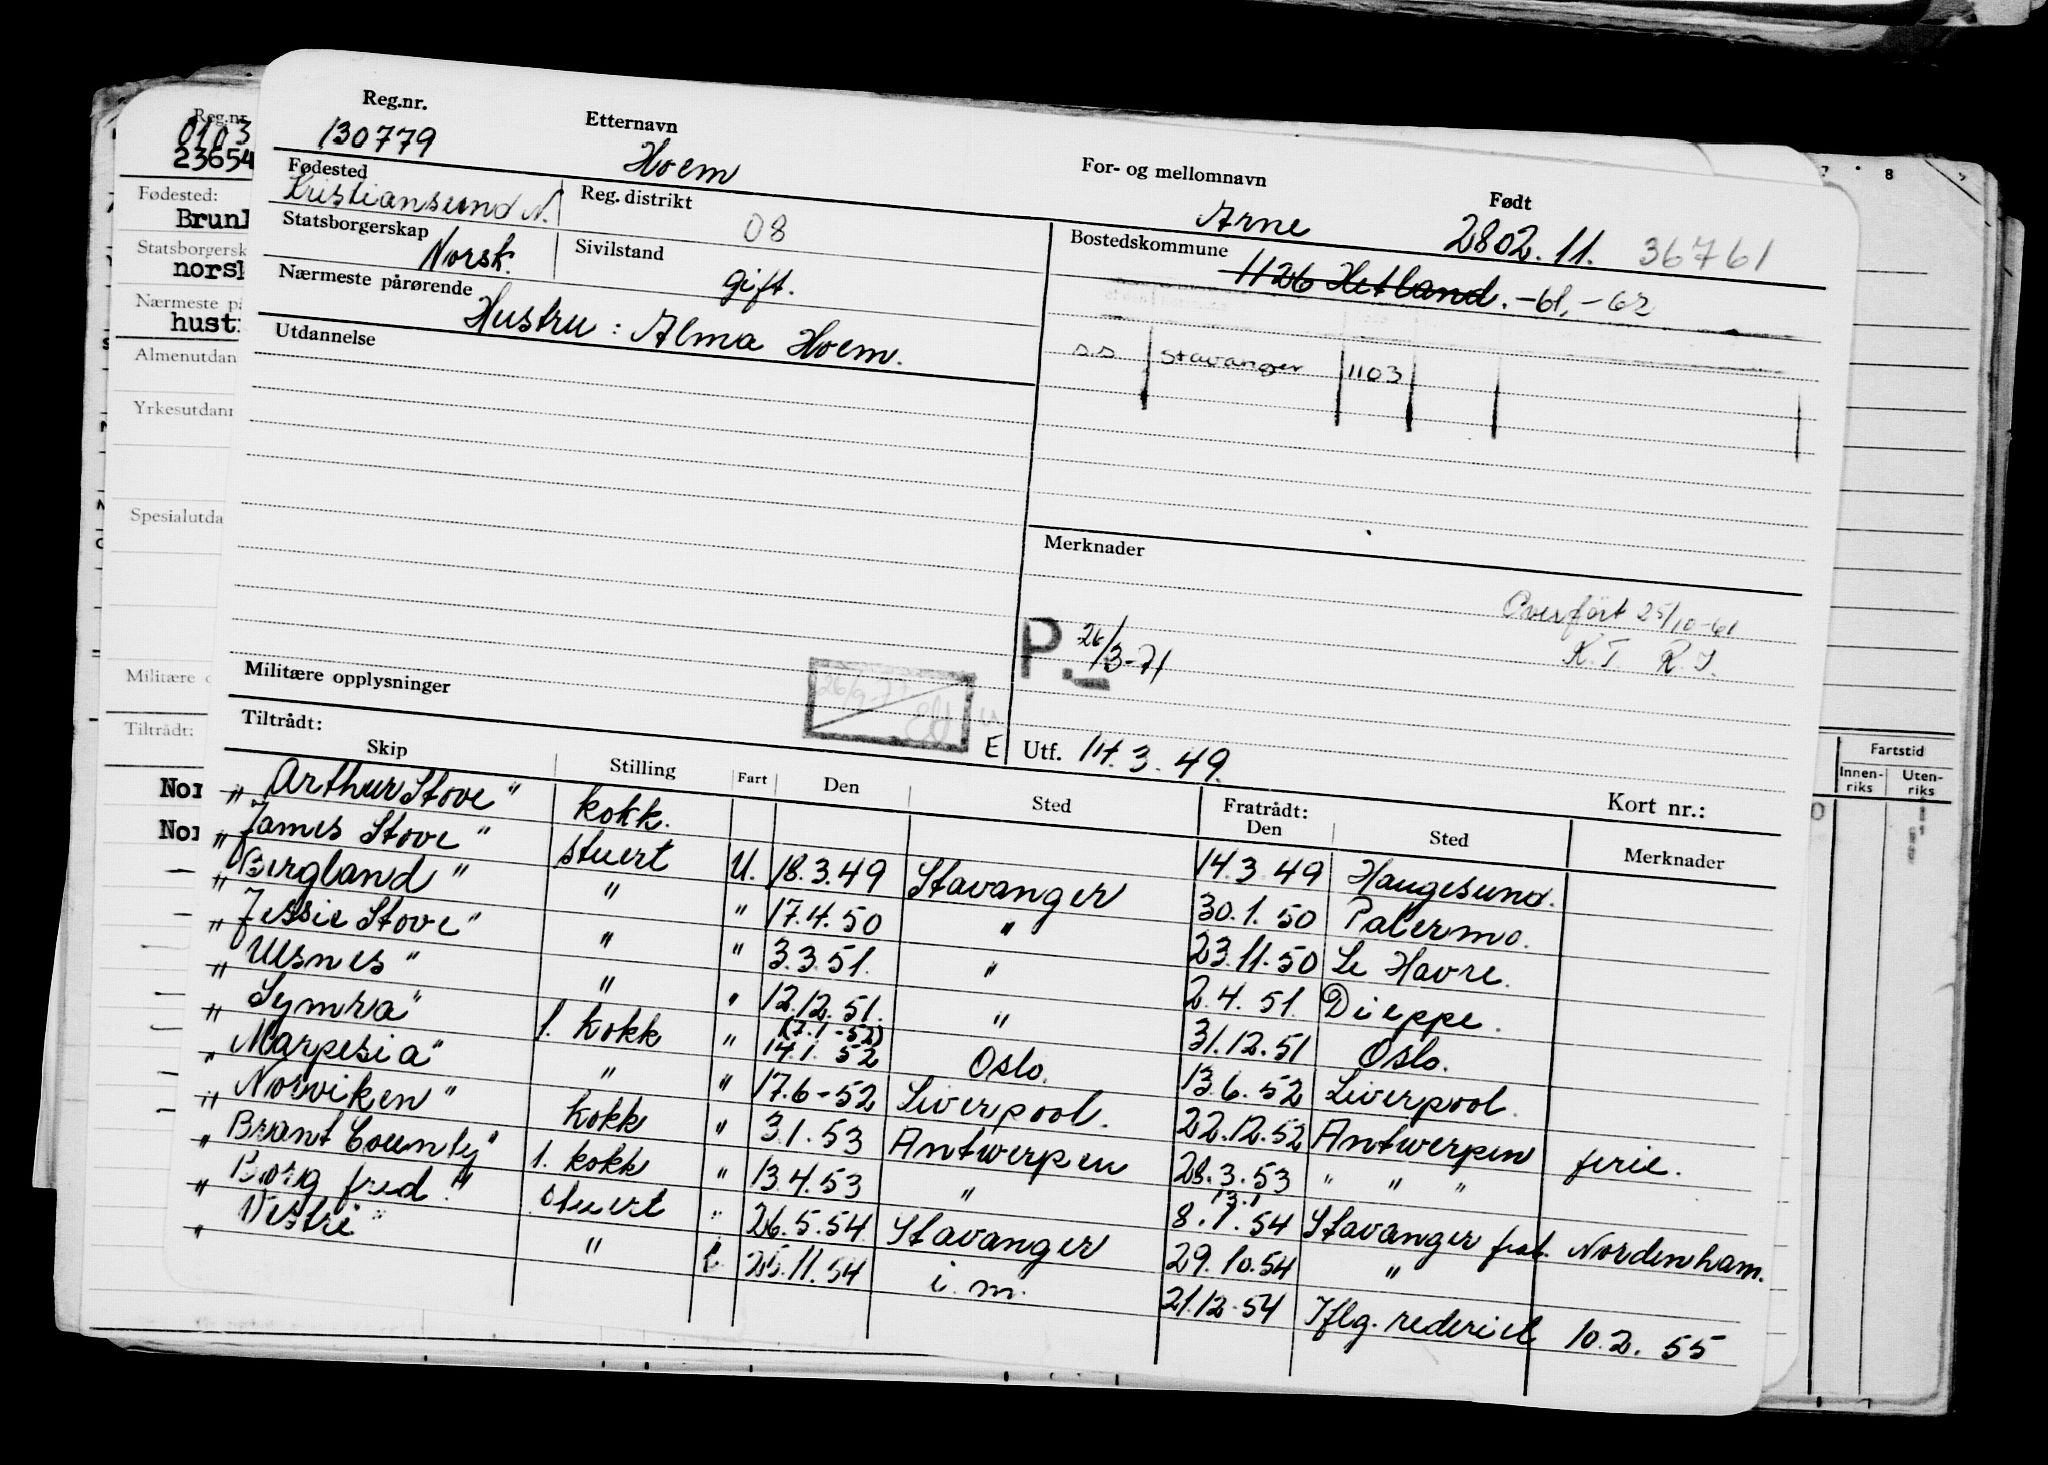 Reg.nr. Etternavn For- og mellomnavn Født
130779 Hoem Arne 2802.11. 36761
Fødested Reg. distrikt Bostedskommune
Kristiansund N. 08 1126 Hetland. -61, -62
Statsborgerskap Sivilstand
Norsk. gift.
Nærmeste pårørende
Hustru: Alma Hoem.
s.s stavanger 1103
Utdannelse
Merknader
Overført 25/10-61
K.T R.J.
P 26/3-71
Militære opplysninger
26/9-77
E Utf. 14.3.49.
Tiltrådt: Fratrådt: Kort nr.:
Skip Stilling Fart Den Sted Den Sted Merknader
"Arthur Stove" kokk. 14.3.49 Haugesund.
"James Stove" stuert U. 18.3.49 Stavanger 30.1.50 Palermo.
"Bergland" " " 17.4.50 " 23.11.50 Le Havre.
"Jessie Stove" " " 3.3.51. " 2.4.51. Dieppe.
"Ulsnes" " " 12.12.51. " 31.12.51 Oslo.
"Symra" 1. kokk " (7.1-52) 14.1.52 Oslo. 13.6.52 Liverpool.
"Marpesia" " " 17.6-52 Liverpool. 22.12.52 Antwerpen ferie.
"Norviken" kokk " 3.1.53 Antwerpen 28.3.53 " " "
"Brant County" 1. kokk " 13.4.53 " 8.1.54 13.1 Stavanger frat. Nordenham.
"Borg fred." stuert " 26.5.54 Stavanger 29.10.54 "
"Vestri" " i. 25.11.54 i.m. 21.12.54 Iflg. rederiet 10.2.55
Reg.nr.
0103
23654
Fødested:
Brunl
Statsborgersk
norsk
Nærmeste på
hust
Almenutdan
Yrkesutdann
Spesialutda
Militære o
Tiltrådt:
Nor
Nor
8
Fartstid
Innen-riks Uten-riks